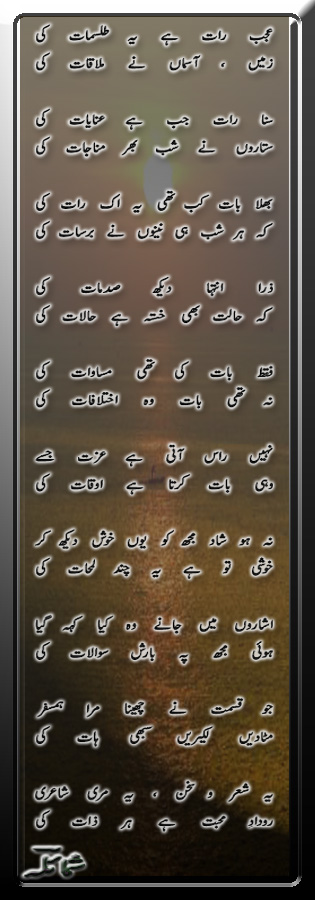 عجب رات ہے یہ طلسمات کی
زمیں ، آسماں نے ملاقات کی
سنا رات جب ہے عنایات کی
ستاروں نے شب بھر مناجات کی
بھلا بات کب تھی یہ اک رات کی
کہ ہر شب ہی نینوں نے برسات کی
ذرا انتہا دیکھ صدمات کی
کہ حالت بھی خستہ ہے حالات کی
فقط بات کی تھی مساوات کی
نہ تھی بات وہ اختلافات کی
نہیں راس آتی ہے عزت جسے
وہی بات کرتا ہے اوقات کی
نہ ہو شاد مجھ کو یوں خوش دیکھ کر
خوشی تو ہے یہ چند لمحات کی
اشاروں میں جانے وہ کیا کہہ گیا
ہوئی مجھ پہ بارش سوالات کی
جو قسمت نے چھینا مرا ہمسفر
مٹادیں لکیریں سبھی ہات کی
یہ شعر و سخن ، یہ مری شاعری
روداد محبت ہے ہر ذات کی